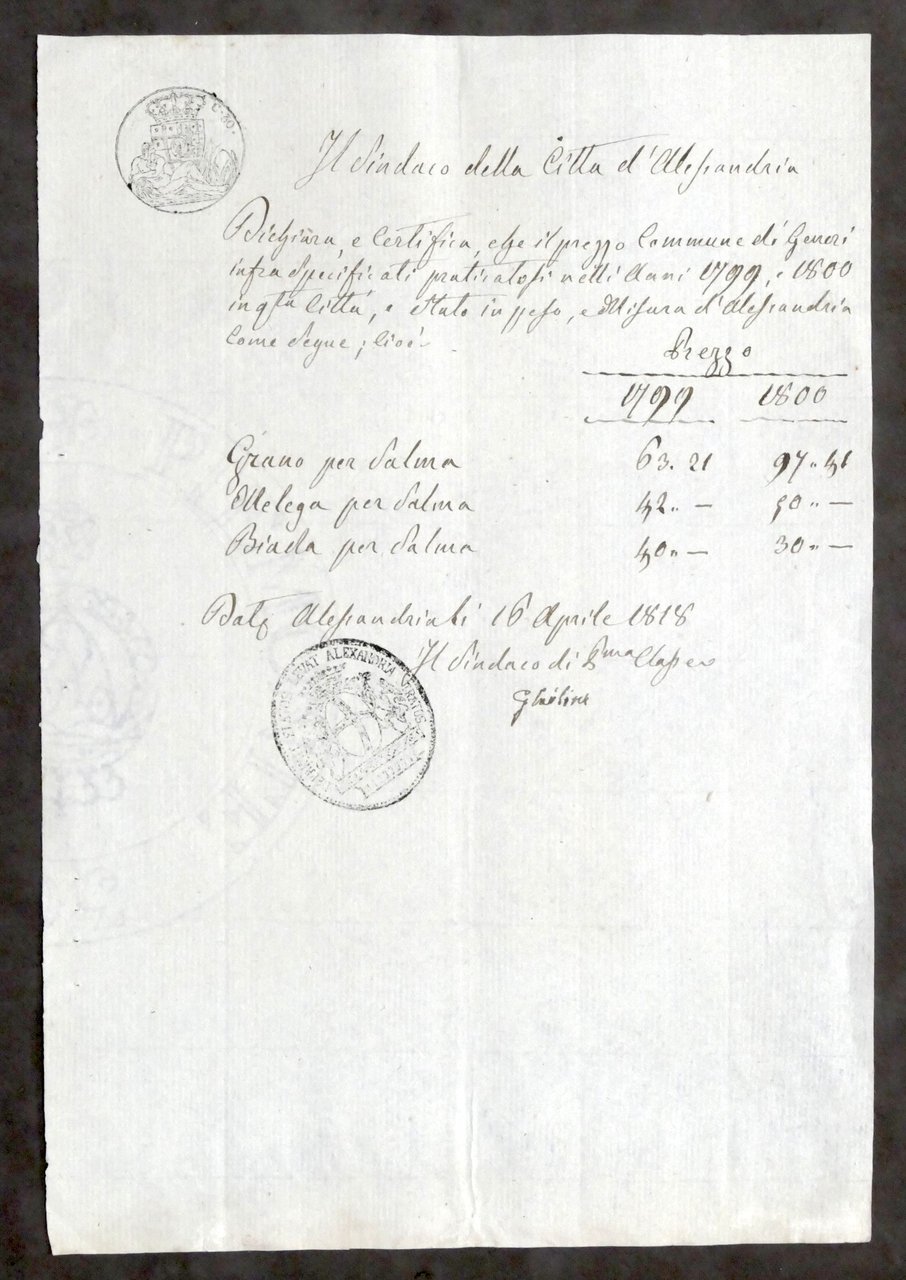 C. 80.
Il Sindaco della Città d'Alessandria
Dichiara, e Certifica, che il prezzo Commune di Generi
infra Specificati praticatosi nelli Anni 1799, e 1800
in qta Città, e Stato in peso, e Misura d'Alessandria
Come Segue; Cioè
Prezzo
1799 1800
Grano per Salma 63. 21 97 .. 41
Melega per Salma 42 .. — 50 .. —
Biada per Salma 40 .. — 30 .. —
Dat Alessandria li 16 Aprile 1818
Il Sindaco di Pma Classe
LEVAT ALEXANDRIA STRATOS